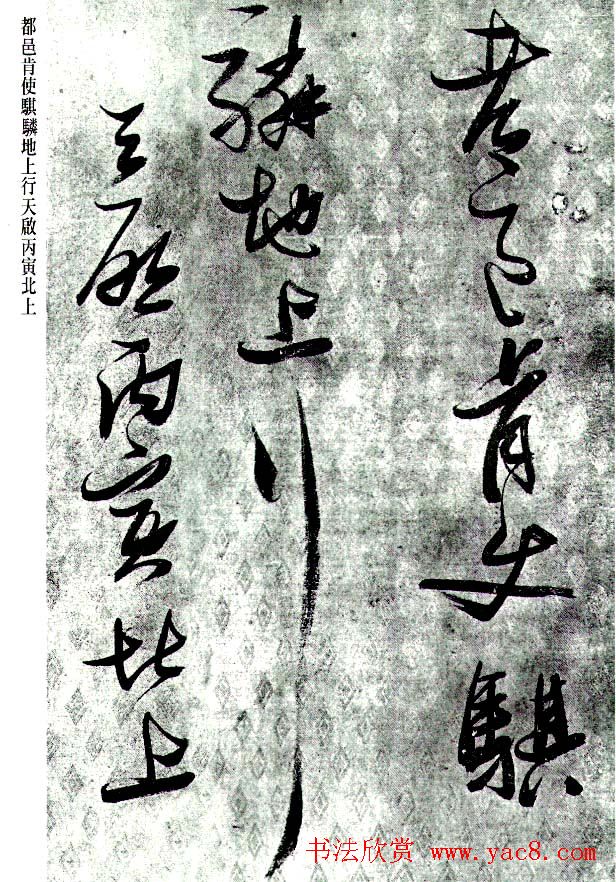 都邑肯使騏
驎地上行
天啟丙寅北上
都邑肯使騏驎地上行天啟丙寅北上
书法欣赏 www.yac8.com